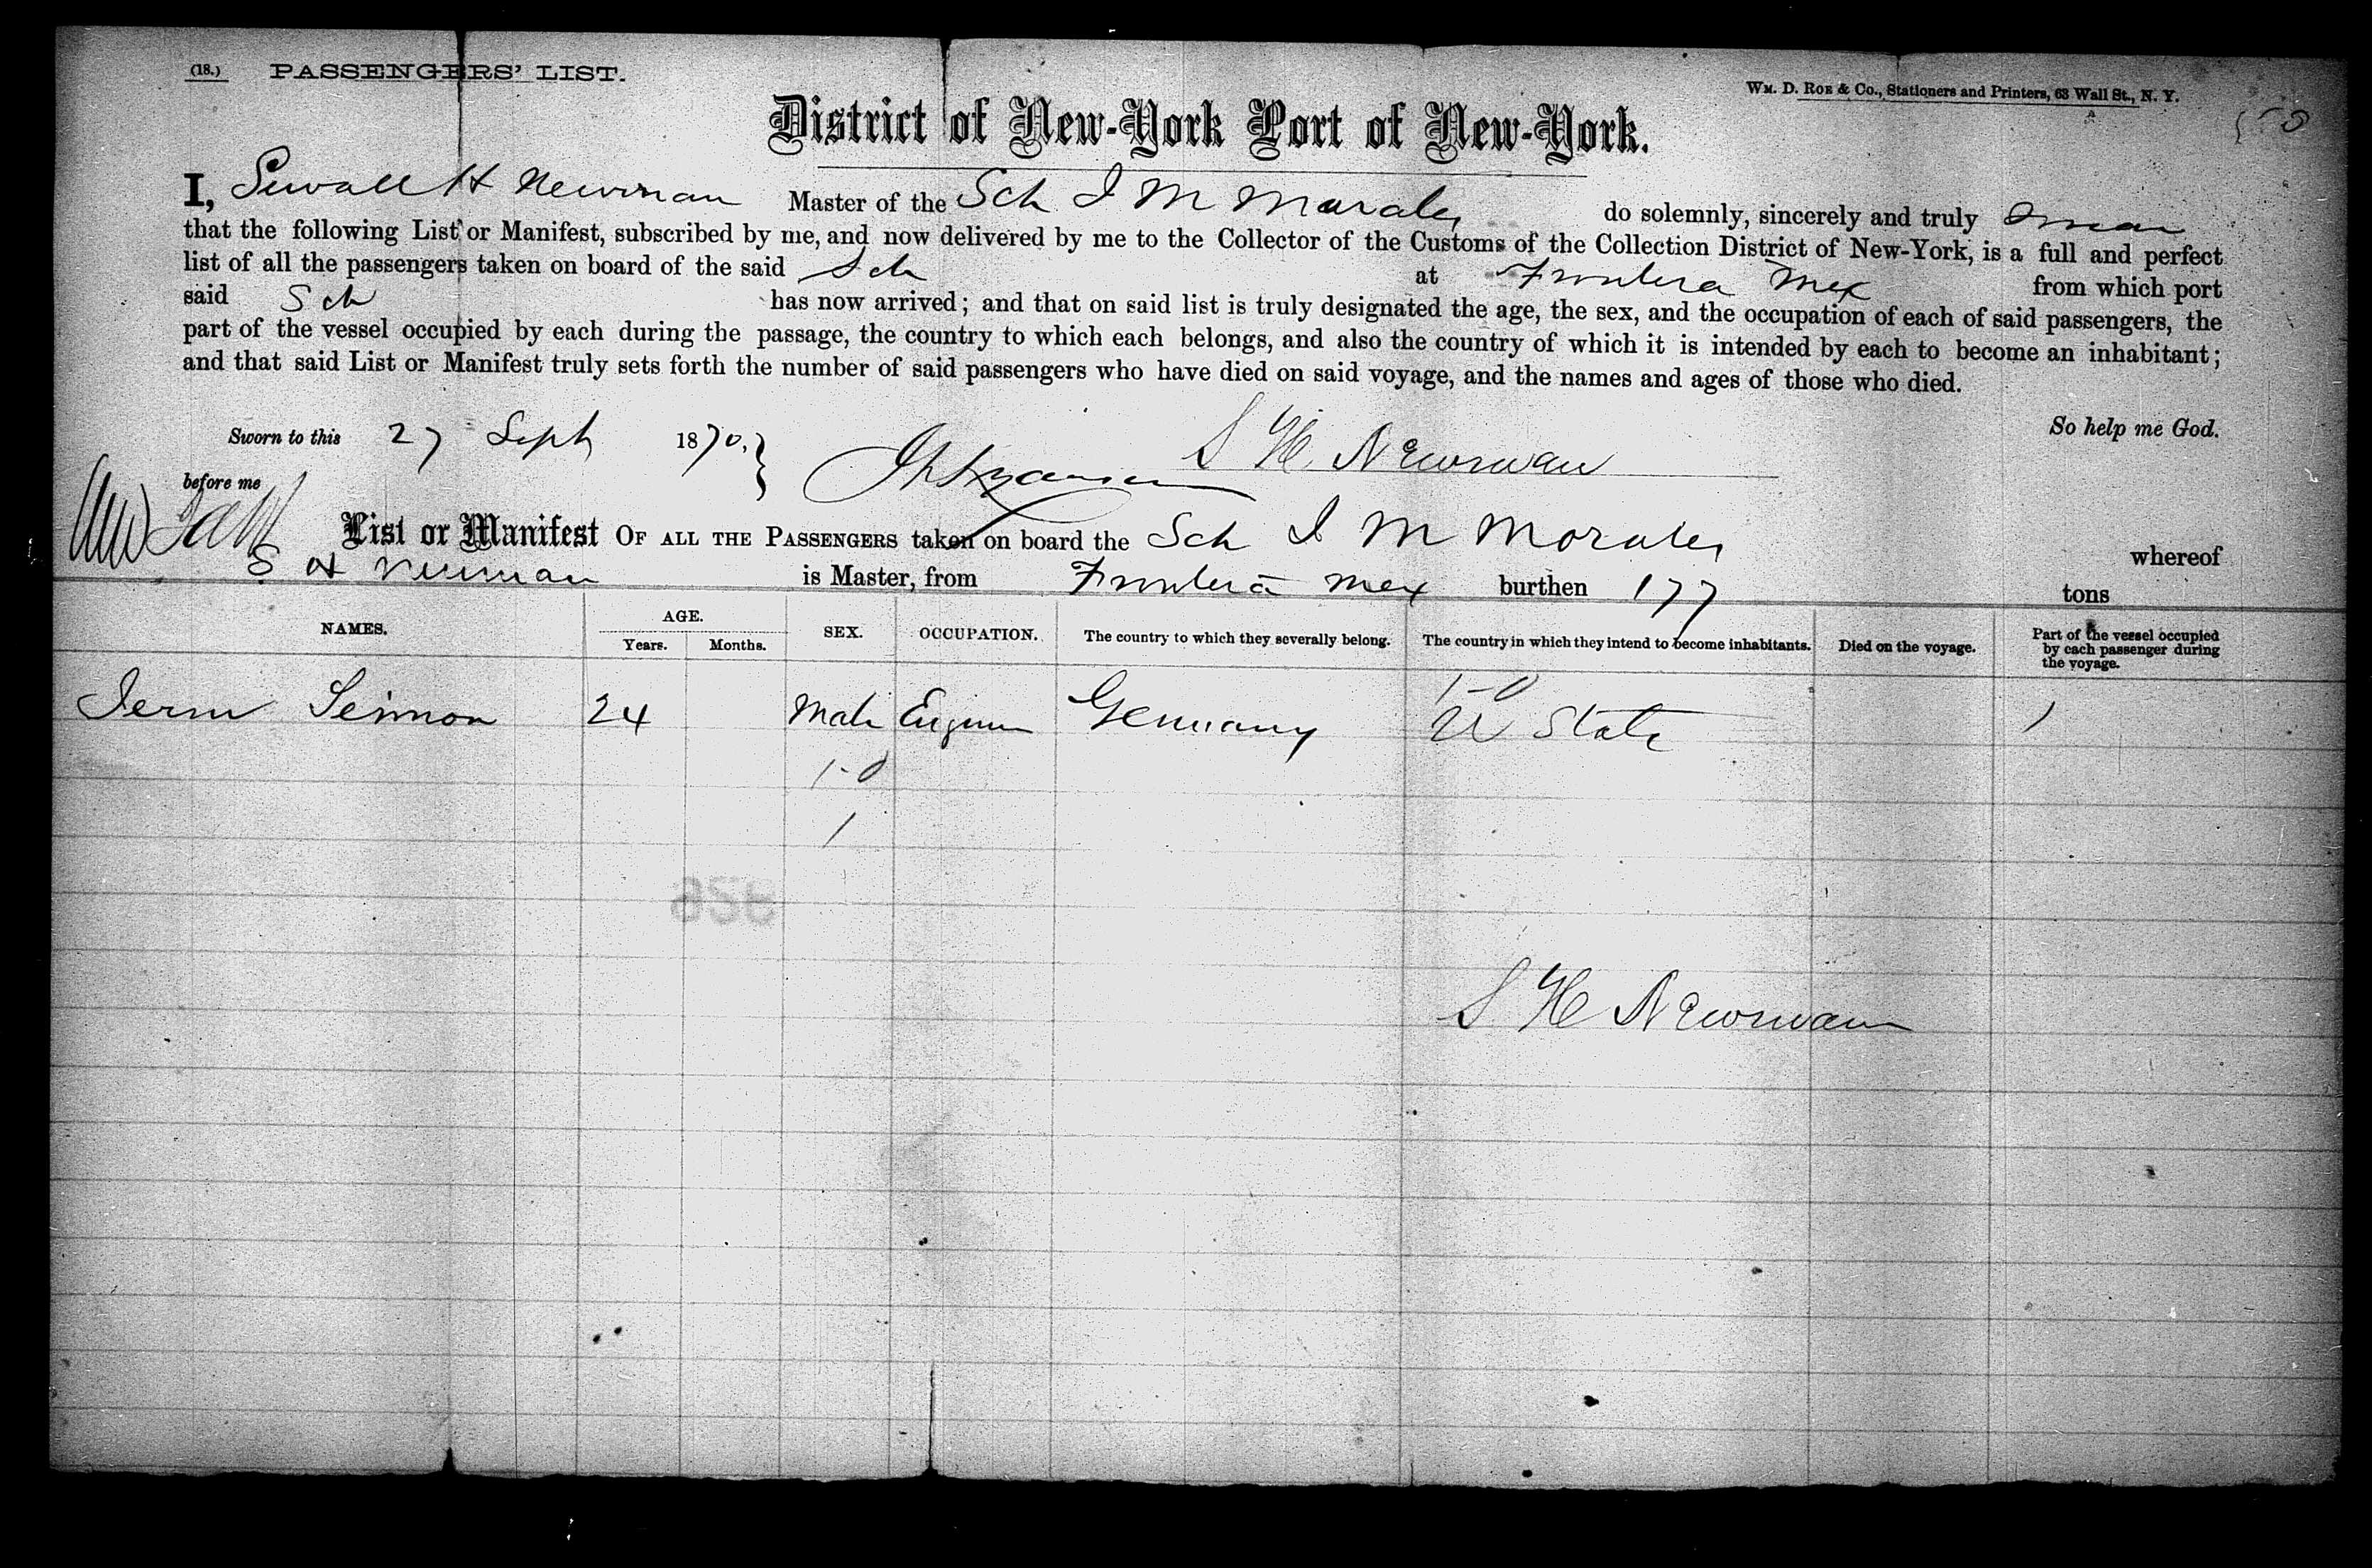 (18.) PASSENGERS' LIST.
Wm. D. Roe & Co., Stationers and Printers, 63 Wall St., N. Y.
District of New-York Port of New-York.
I, Sewall H Newman Master of the Sch I M Morales do solemnly, sincerely and truly swear
that the following List or Manifest, subscribed by me, and now delivered by me to the Collector of the Customs of the Collection District of New-York, is a full and perfect
list of all the passengers taken on board of the said Sch at Frontera Mex from which port
said Sch has now arrived; and that on said list is truly designated the age, the sex, and the occupation of each of said passengers, the
part of the vessel occupied by each during the passage, the country to which each belongs, and also the country of which it is intended by each to become an inhabitant;
and that said List or Manifest truly sets forth the number of said passengers who have died on said voyage, and the names and ages of those who died.
So help me God.
Sworn to this 27 Sept 1870. S H Newman
before me
List or Manifest OF ALL THE PASSENGERS taken on board the Sch I M Morales whereof
S H Newman is Master, from Frontera Mex burthen 177 tons
NAMES. AGE. SEX. OCCUPATION. The country to which they severally belong. The country in which they intend to become inhabitants. Died on the voyage. Part of the vessel occupied by each passenger during the voyage.
Years. Months.
1-0
24 Male Germany U State 1
1-0
1
S H Newman